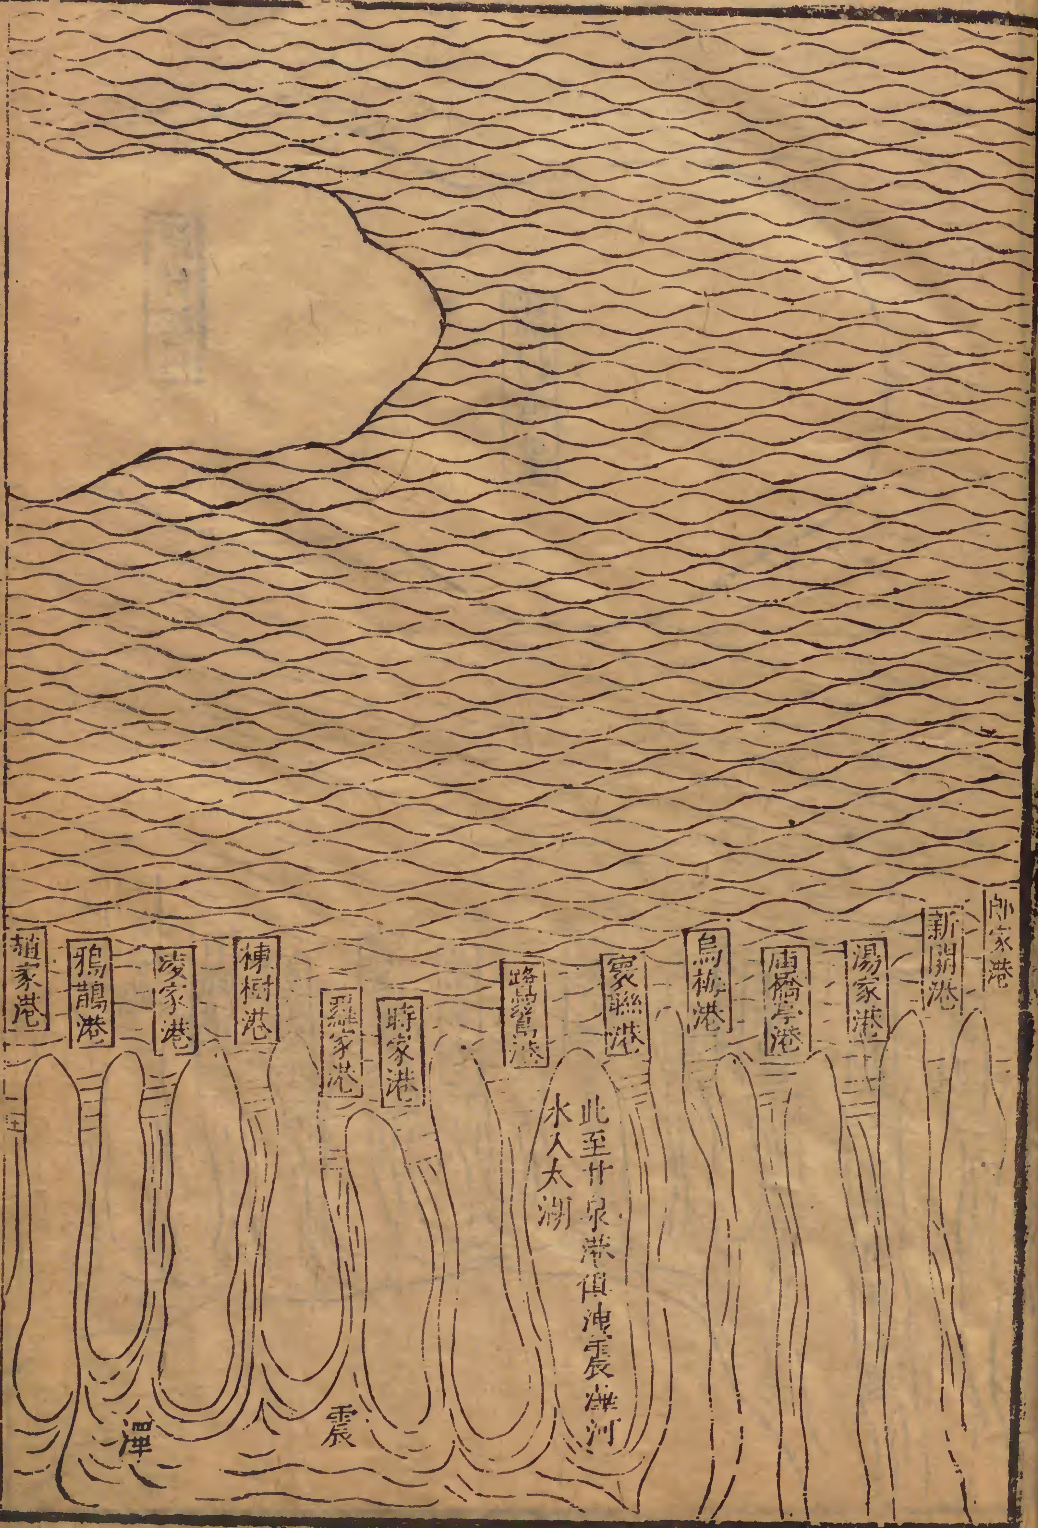 郎家港
新開港
湯家港
庙橋亭港
烏梅港
寰聯港
此至廿泉港俱洩震澤河
水入太湖
路鶯港
時家港
羅家港
棟樹港
凌家港
鴉鵲港
趙家港
震
澤